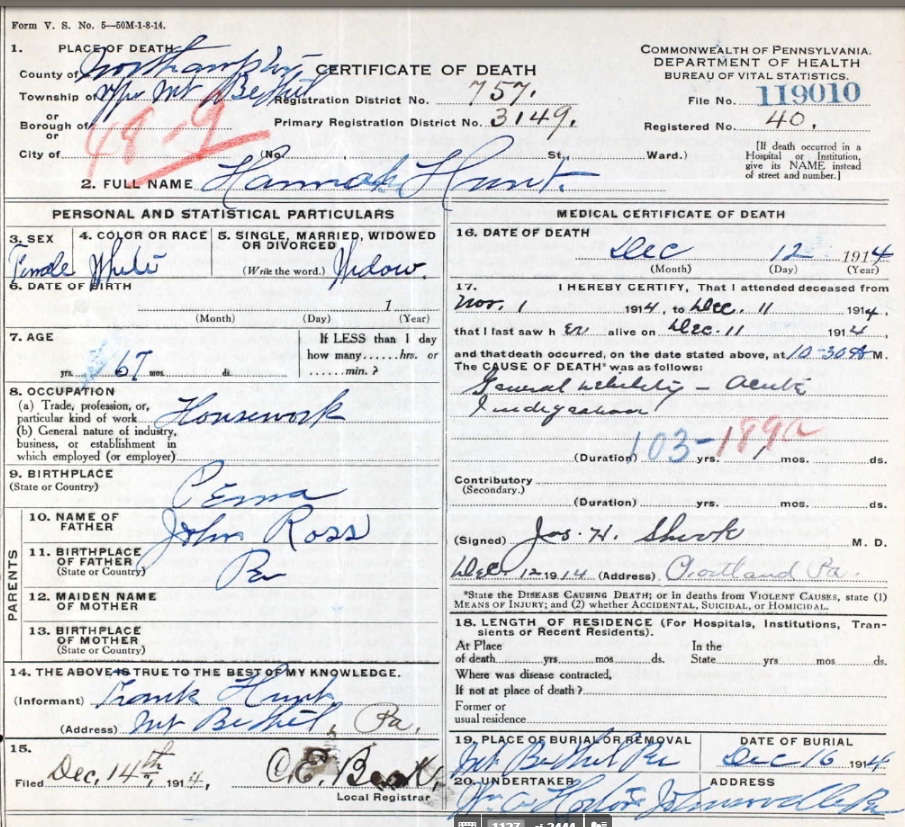 Form V. S. No. 5—50M-1-8-14.
1. PLACE OF DEATH
County of Northampton
Township of Upper Mt Bethel
or
Borough of
or
City of
48-9
CERTIFICATE OF DEATH
Registration District No. 757.
Primary Registration District No. 3149.
(No. , St., Ward.)
COMMONWEALTH OF PENNSYLVANIA.
DEPARTMENT OF HEALTH
BUREAU OF VITAL STATISTICS.
File No. 119010
Registered No. 40.
[If death occurred in a
Hospital or Institution,
give its NAME instead
of street and number.]
2. FULL NAME Hannah Hunt.
PERSONAL AND STATISTICAL PARTICULARS
3. SEX
Female
4. COLOR OR RACE
White
5. SINGLE, MARRIED, WIDOWED
OR DIVORCED
(Write the word.) Widow.
6. DATE OF BIRTH
1
(Month) (Day) (Year)
7. AGE
67
yrs. mos. ds.
If LESS than 1 day
how many......hrs. or
...... min. ?
8. OCCUPATION
(a) Trade, profession, or,
particular kind of work Housework
(b) General nature of industry,
business, or establishment in
which employed (or employer)
9. BIRTHPLACE
(State or Country) Penna
PARENTS
10. NAME OF
FATHER John Ross
11. BIRTHPLACE
OF FATHER
(State or Country) Pa
12. MAIDEN NAME
OF MOTHER
13. BIRTHPLACE
OF MOTHER
(State or Country)
14. THE ABOVE IS TRUE TO THE BEST OF MY KNOWLEDGE.
(Informant) Frank Hunt
(Address) Mt Bethel Pa.
15.
Filed Dec. 14th, 1914, C. E.
Local Registrar
MEDICAL CERTIFICATE OF DEATH
16. DATE OF DEATH
Dec 12 1914
(Month) (Day) (Year)
17. I HEREBY CERTIFY, That I attended deceased from
Nov. 1 1914, to Dec. 11 1914,
that I last saw her alive on Dec. 11 1914,
and that death occurred, on the date stated above, at 10-30 M.
The CAUSE OF DEATH* was as follows:
General debility - Acute
Indigestion
103-189a
(Duration) yrs. 1 mos. ds.
Contributory
(Secondary.)
(Duration) yrs. mos. ds.
(Signed) Jos. H. Shook M. D.
Dec 12 1914 (Address) Portland Pa.
*State the DISEASE CAUSING DEATH; or in deaths from VIOLENT CAUSES, state (1)
MEANS OF INJURY; and (2) whether ACCIDENTAL, SUICIDAL, or HOMICIDAL.
18. LENGTH OF RESIDENCE (For Hospitals, Institutions, Tran-
sients or Recent Residents).
At Place
of death yrs. mos. ds.
In the
State yrs. mos. ds.
Where was disease contracted,
If not at place of death ?
Former or
usual residence
19. PLACE OF BURIAL OR REMOVAL
Mt Bethel Pa
DATE OF BURIAL
Dec 16 1914
20. UNDERTAKER
ADDRESS
Johnsonville Pa
1127 of 2444